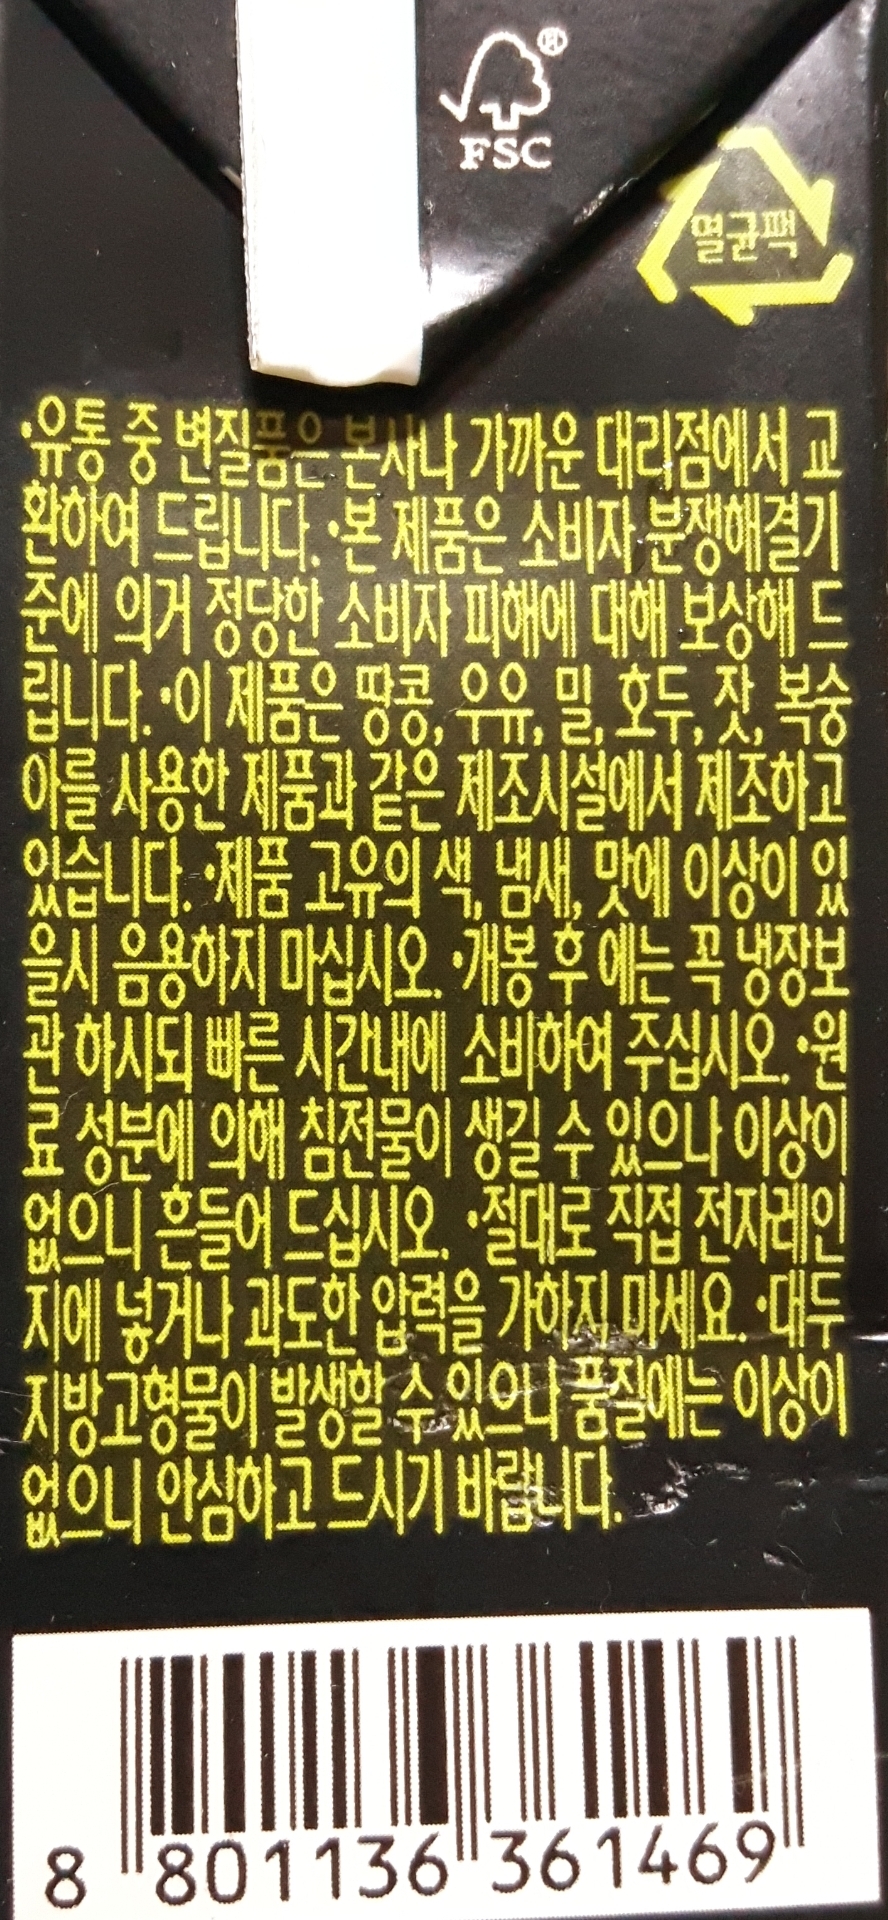 FSC®
멸균팩
·유통 중 변질품은 본사나 가까운 대리점에서 교
환하여 드립니다. ·본 제품은 소비자 분쟁해결기
준에 의거 정당한 소비자 피해에 대해 보상해 드
립니다. ·이 제품은 땅콩, 우유, 밀, 호두, 잣, 복숭
아를 사용한 제품과 같은 제조시설에서 제조하고
있습니다. ·제품 고유의 색, 냄새, 맛에 이상이 있
을시 음용하지 마십시오. ·개봉 후 에는 꼭 냉장보
관 하시되 빠른 시간내에 소비하여 주십시오. ·원
료 성분에 의해 침전물이 생길 수 있으나 이상이
없으니 흔들어 드십시오. ·절대로 직접 전자레인
지에 넣거나 과도한 압력을 가하지 마세요. ·대두
지방고형물이 발생할 수 있으나 품질에는 이상이
없으니 안심하고 드시기 바랍니다.
8 801136 361469